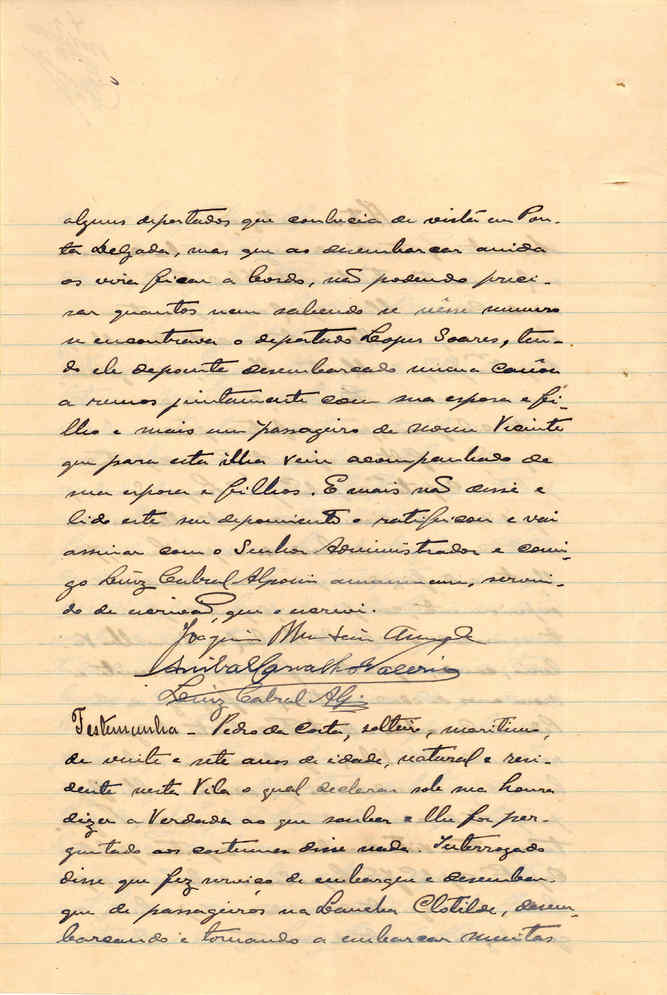 alguns deportados que conhecia de vista em Pon-
ta Delgada, mas que ao desembarcar ainda
os vira ficar a bordo, não podendo preci-
sar quantos nem sabendo se nêsse numero
se encontrava o deportado Lopes Soares, ten-
do ele depoente desembarcado numa canôa
a remos juntamente com sua esposa e fi-
lho e mais um passageiro de nome Vicente
que para esta ilha veiu acompanhado de
sua esposa e filhos. E mais não disse e
lido este seu depoimento o ratificou e vai
assinar com o Senhor Administrador e comi-
go Luiz Cabral Alpoim amanuense, servin-
do de escrivão, que o escrevi.
Joaquim
Anibal Carvalho Valerio
Luiz Cabral Alp.
Testemunha - Pedro da Costa, solteiro, maritimo,
de vinte e sete anos de idade, natural e resi-
dente nesta Vila o qual declarou sob sua honra
dizer a Verdade ao que souber e lhe for per-
guntado aos costumes disse nada. Interrogado
disse que fez serviço de embarque e desembar-
que de passageiros na Lancha Clotilde, desem-
barcando e tornando a embarcar muitos